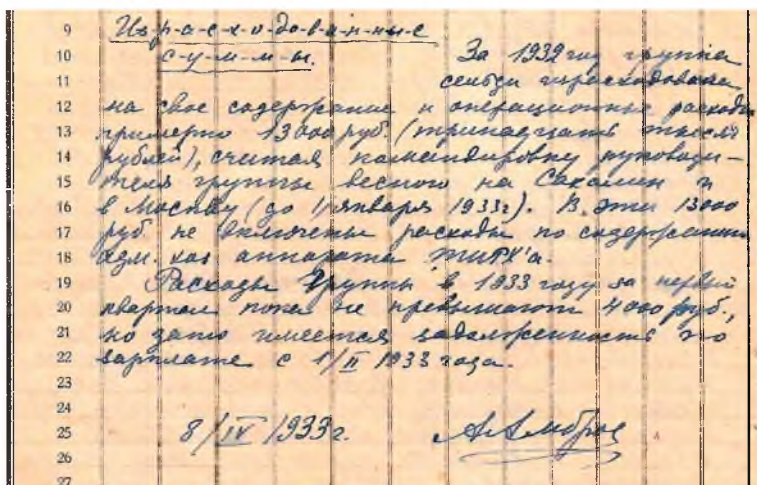 9 Из-р-а-с-х-о-до-в-а-н-ны-е
10 с-у-м-м-ы. За 1932 год группа
11 сельди израсходовала
12 на свое содержание и операционные расходы
13 примерно 13000 руб. (тринадцать тысяч
14 рублей), считая командировку руководи-
15 теля группы весною на Сахалин и
16 в Москву (до 1 января 1933г). В эти 13000
17 руб. не включены расходы по содержанию
18 адм. хоз аппарата ТИРХ'а.
19 Расходы Группы в 1933 году за первый
20 квартал пока не превышают 4000 руб.,
21 но зато имеется задолженность по
22 зарплате с 1/II 1933 года.
23
24
25 8/IV 1933г.
26
27